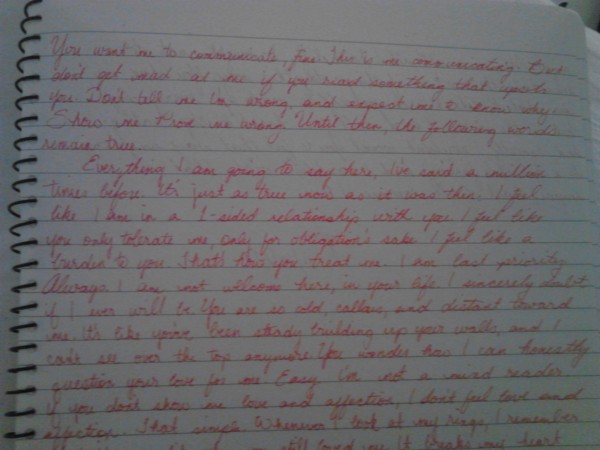 You want me to communicate, fine. This is me communicating. But
don't get mad at me if you read something that upsets
you. Don't tell me I'm wrong, and expect me to know why.
Show me. Prove me wrong. Until then, the following words
remain true.
Everything I am going to say here, I've said a million
times before. It's just as true now as it was then. I feel
like I am in a 1-sided relationship with you. I feel like
you only tolerate me, only for obligation's sake. I feel like a
burdin to you. That's how you treat me. I am last priority.
Always. I am not welcome here, in your life. I sincerely doubt
if I ever will be. You are so cold, callous, and distant toward
me. It's like you've been steady building up your walls, and I
can't see over the top anymore. You wonder how I can honestly
question your love for me. Easy. I'm not a mind reader.
If you don't show me love and affection, I don't feel love and
affection. That simple. Whenever I look at my rings, I remember
still loved me. It breaks my heart